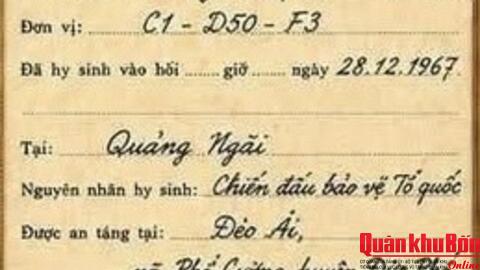 Đơn vị: C1 - D50 - F3
Đã hy sinh vào hồi ...... giờ ...... ngày 28.12.1967
Tại: Quảng Ngãi
Nguyên nhân hy sinh: Chiến đấu bảo vệ Tổ quốc
Được an táng tại: Đèo Ải,
xã Phổ Cường huyện
Quân khu Bốn